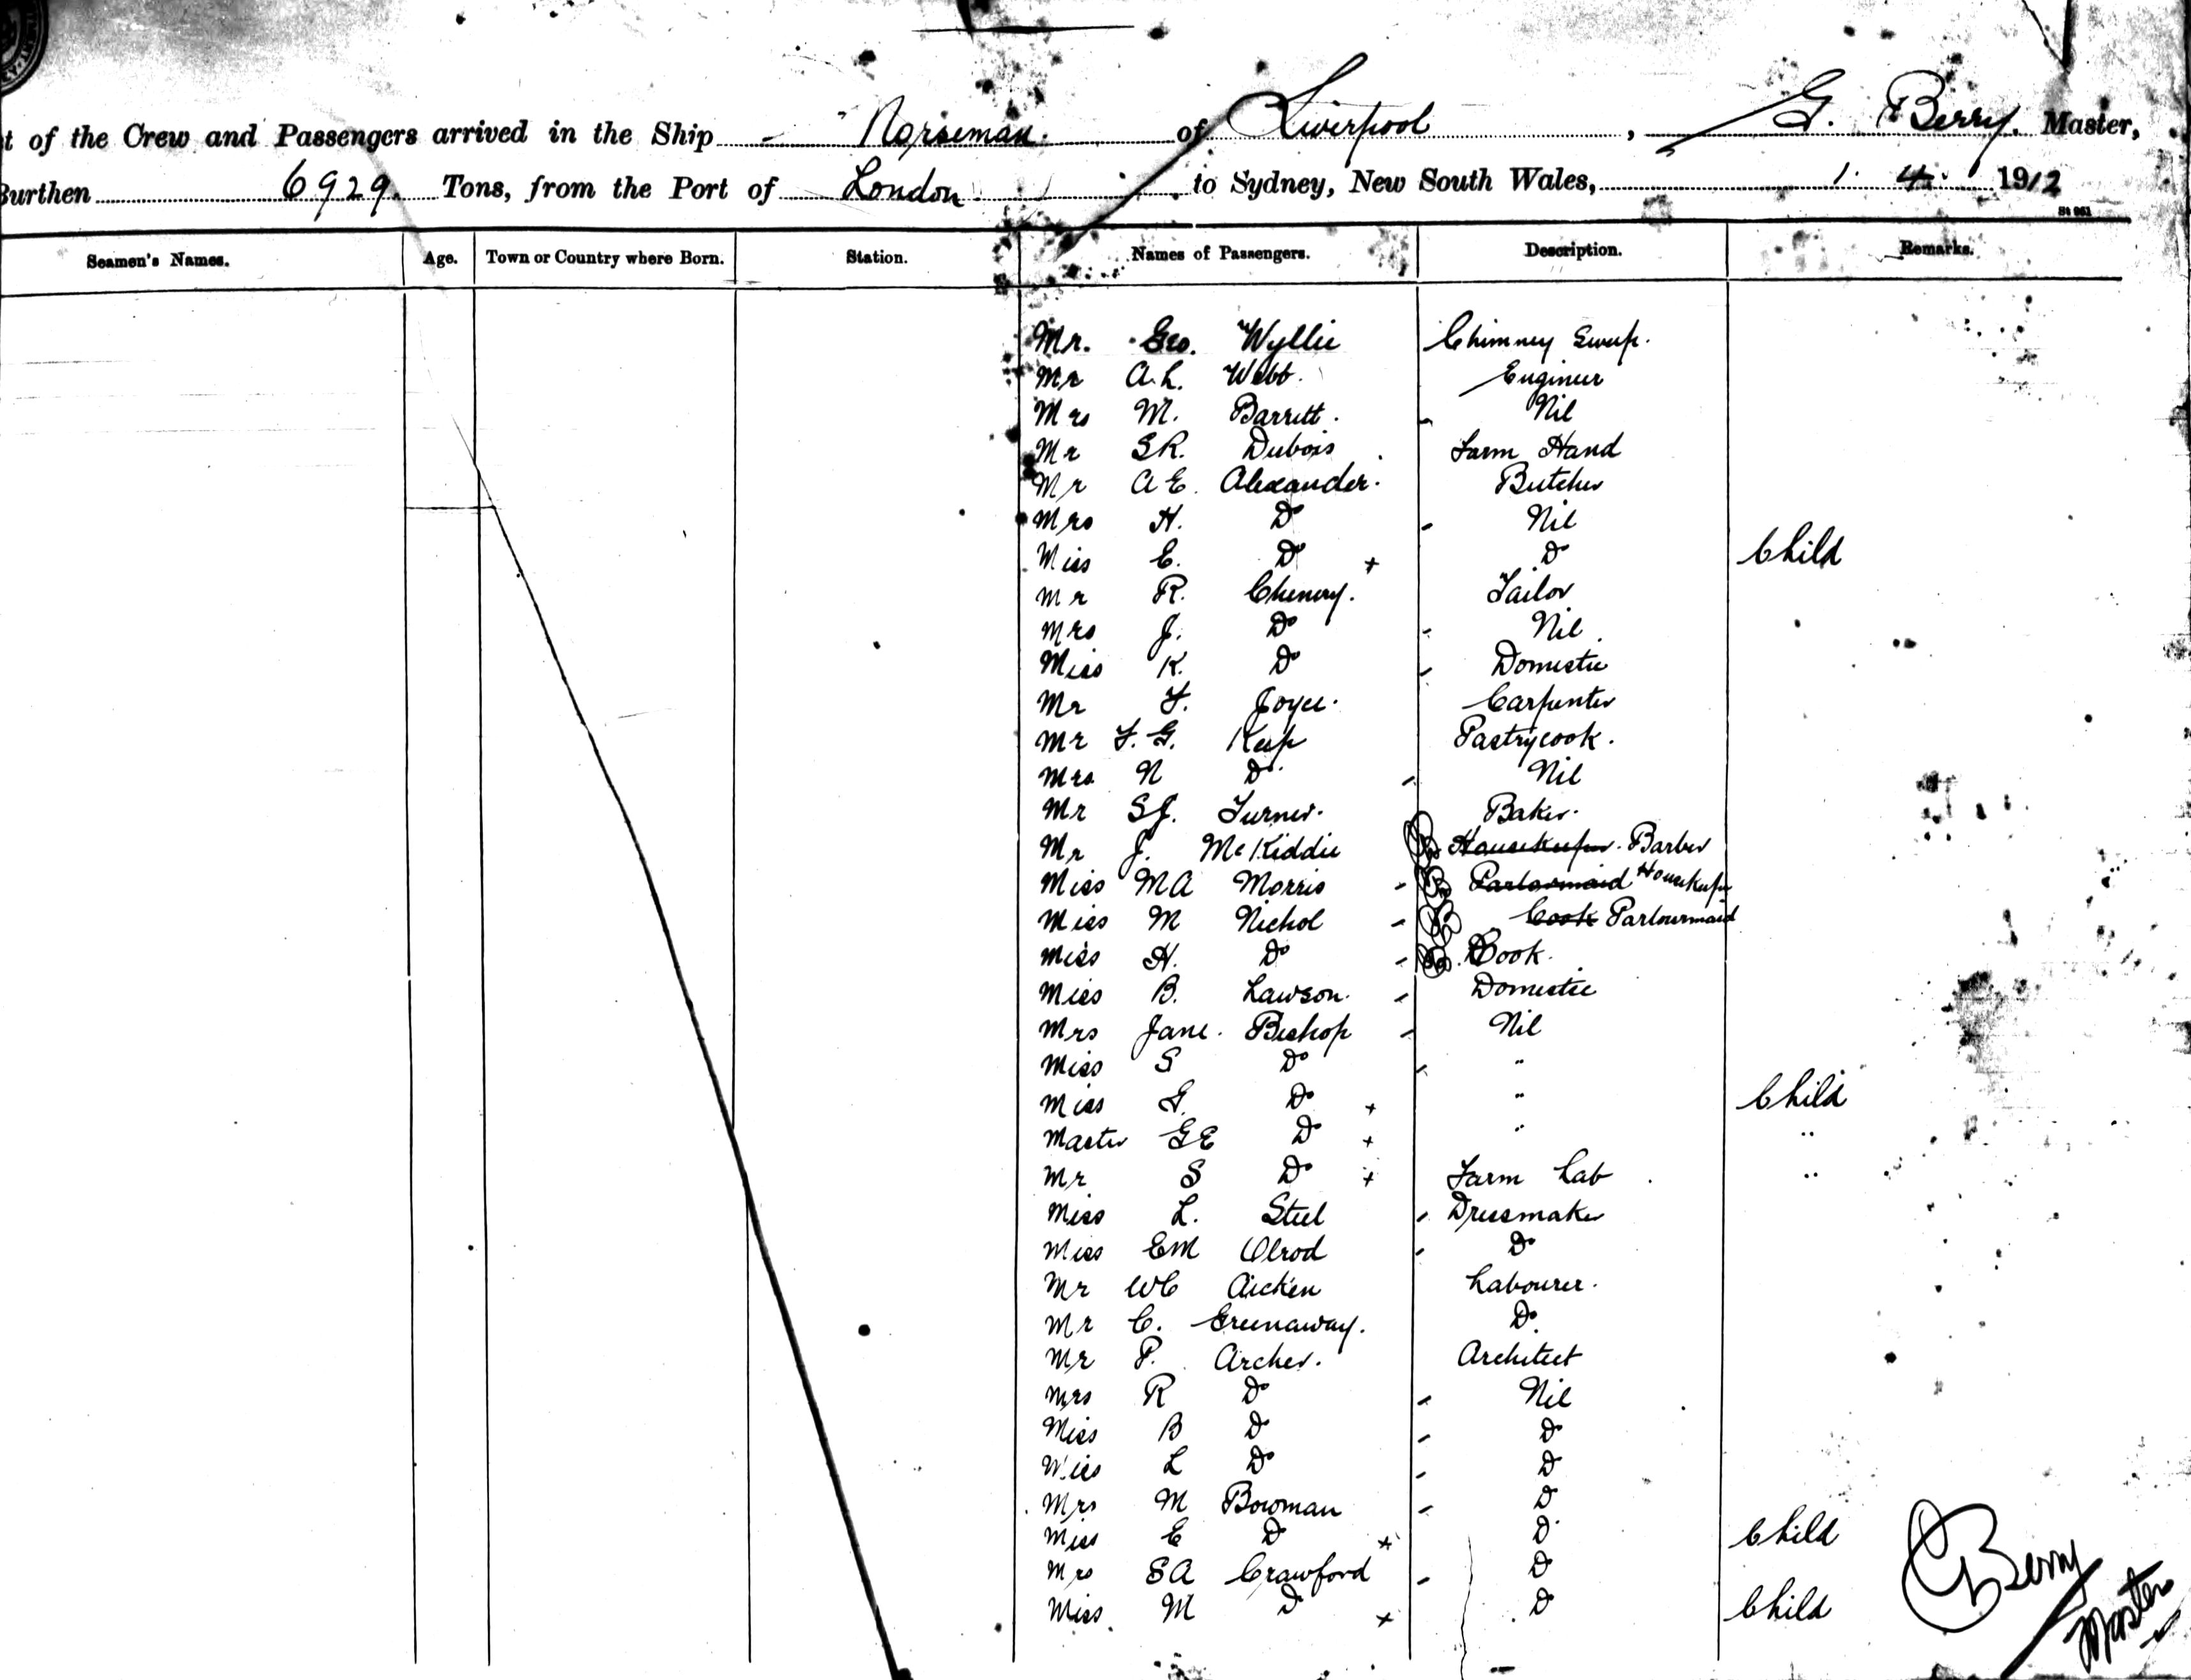 t of the Crew and Passengers arrived in the Ship Norseman. of Liverpool, G. Berry. Master,
Burthen 6929. Tons, from the Port of London to Sydney, New South Wales, 1. 4. 1912
St 961
Seamen's Names. Age. Town or Country where Born. Station. Names of Passengers. Description. Remarks.
Mr. Geo. Wyllie Chimney Sweep.
Mr A.L. Webb. Engineer
Mrs M. Barrett. Nil
Mr S.R. Dubois Farm Hand
Mr A E. Alexander. Butcher
Mrs H. Do Nil
Miss E. Do + Do Child
Mr R. Chenery. Tailor
Mrs J. Do Nil.
Miss K. Do Domestic
Mr F. Joyce. Carpenter
Mr F. G. Keep Pastrycook.
Mrs N Do Nil
Mr S.J. Turner. Baker.
Mr J. McKiddie Housekeeper. Barber
Miss M A Morris Parlormaid Housekeeper
Miss M Nichol Cook Parlourmaid
Miss H. Do Cook.
Miss B. Lawson. Domestic
Mrs Jane. Bishop Nil
Miss S Do "
Miss G. Do + " Child
Master G E Do + " "
Mr S Do + Farm Lab "
Miss L. Steel Dressmaker
Miss E M Olrod Do
Mr W C Aicken Labourer.
Mr C. Greenaway. Do
Mr P. Archer. Architect
Mrs R Do Nil
Miss B Do Do
Miss L Do Do
Mrs M Bowman Do
Miss E Do + Do Child
Mrs S A Crawford Do
Miss M Do + Do Child
Berry
Master